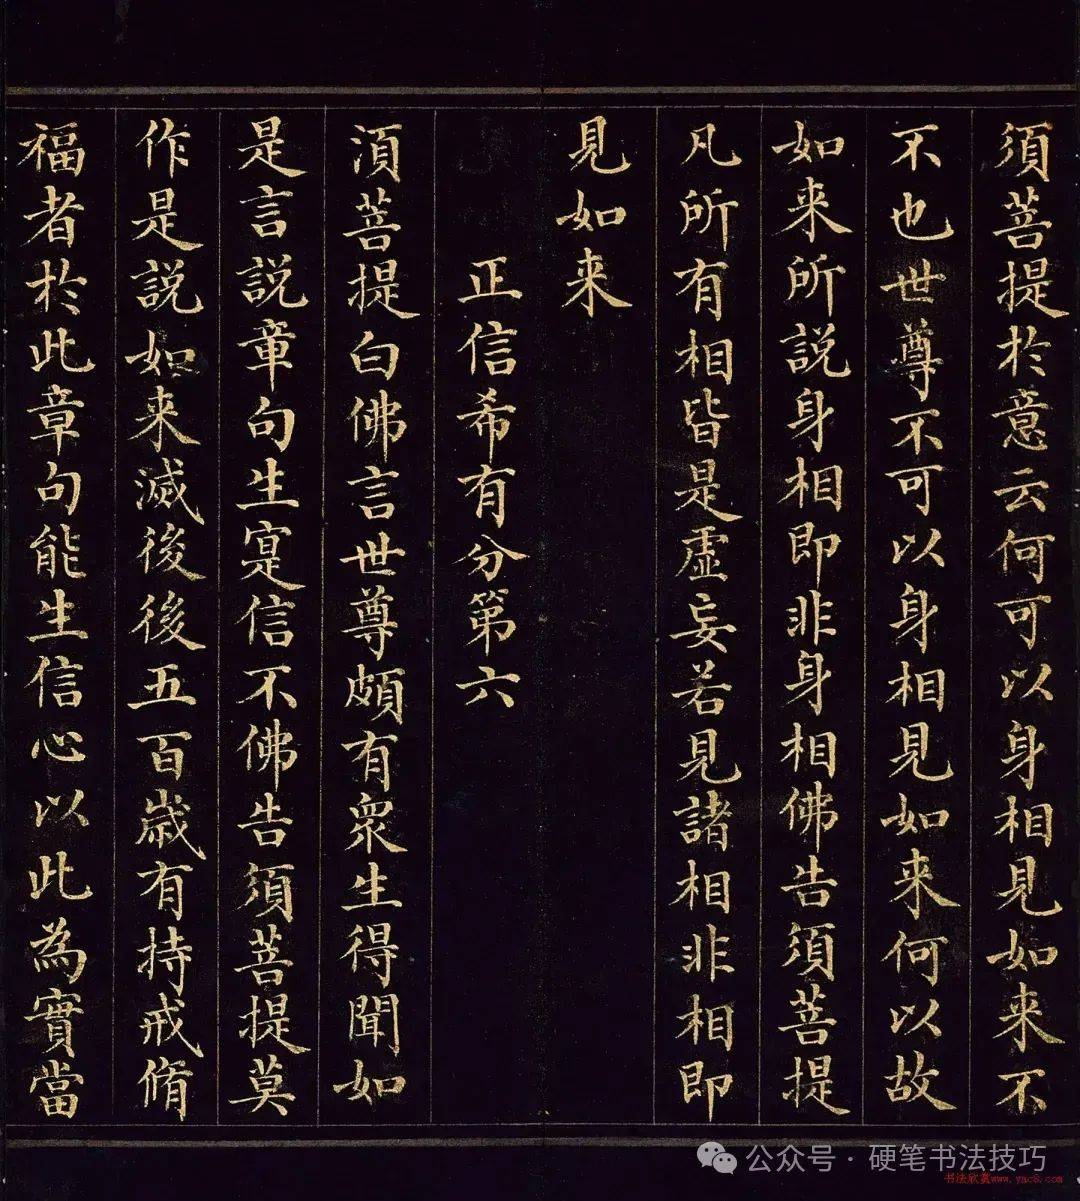 須菩提於意云何可以身相見如来不
不也世尊不可以身相見如来何以故
如来所説身相即非身相佛告須菩提
凡所有相皆是虛妄若見諸相非相即
見如来
正信希有分第六
湏菩提白佛言世尊頗有衆生得聞如
是言説章句生寔信不佛告須菩提莫
作是説如来滅後後五百歳有持戒脩
福者於此章句能生信心以此為實當
公众号·硬笔书法技巧
书法欣赏www.yac8.com